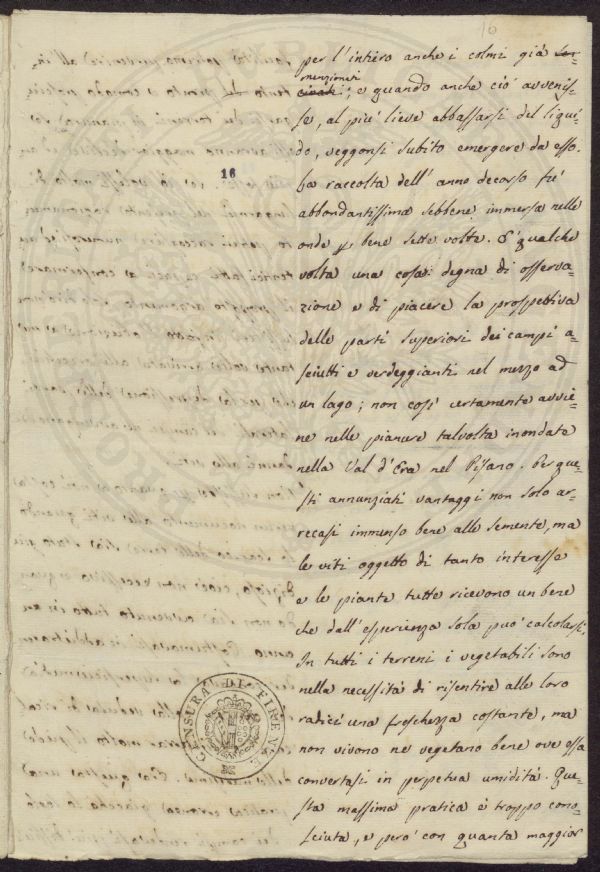 16
16
per l'intiero anche i colmi già
menzionati
; e quando anche ciò avvenis-
se, al più lieve abbassarsi del liqui-
do, veggonsi subito emergere da esso.
La raccolta dell' anno decorso fù
abbondantissima sebbene immersa nelle
onde bene sette volte. È qualche
volta una cosa degna di osserva-
zione e di piacere la prospettiva
delle parti superiori dei campi a-
sciutti e verdeggianti nel mezzo ad
un lago; non così certamente avvie-
ne nelle pianure talvolta inondate
nella Val d'Era nel Pisano. Per que-
sti annunziati vantaggi non solo ar-
recasi immenso bene alle semente, ma
le viti oggetto di tanto interesse
e le piante tutte ricevono un bene
che dall'esperienza sola può calcolarsi.
In tutti i terreni i vegetabili sono
nella necessità di risentire alle loro
radici una freschezza costante, ma
non vivono ne vegetano bene ove essa
convertasi in perpetua umidità. Que-
sta massima pratica è troppo cono-
sciuta, e però con quanta maggior
CENSURA DI FIRENZE